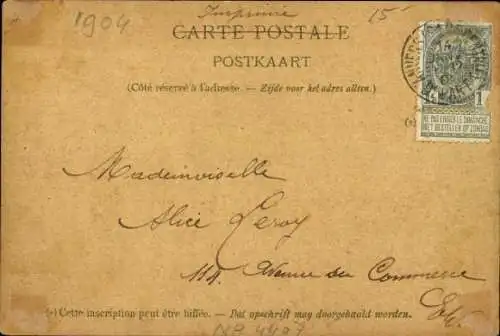 Imprimé
1904
15
CARTE POSTALE
POSTKAART
(Côté réservé à l'adresse. — Zijde voor het adres alleen.)
1
NE PAS LIVRER LE DIMANCHE
NIET BESTELLEN OP ZONDAG
Mademoiselle
Alice Leroy
114, Avenue du Commerce
(*) Cette inscription peut être biffée. — Dat opschrift mag doorgehaald worden.